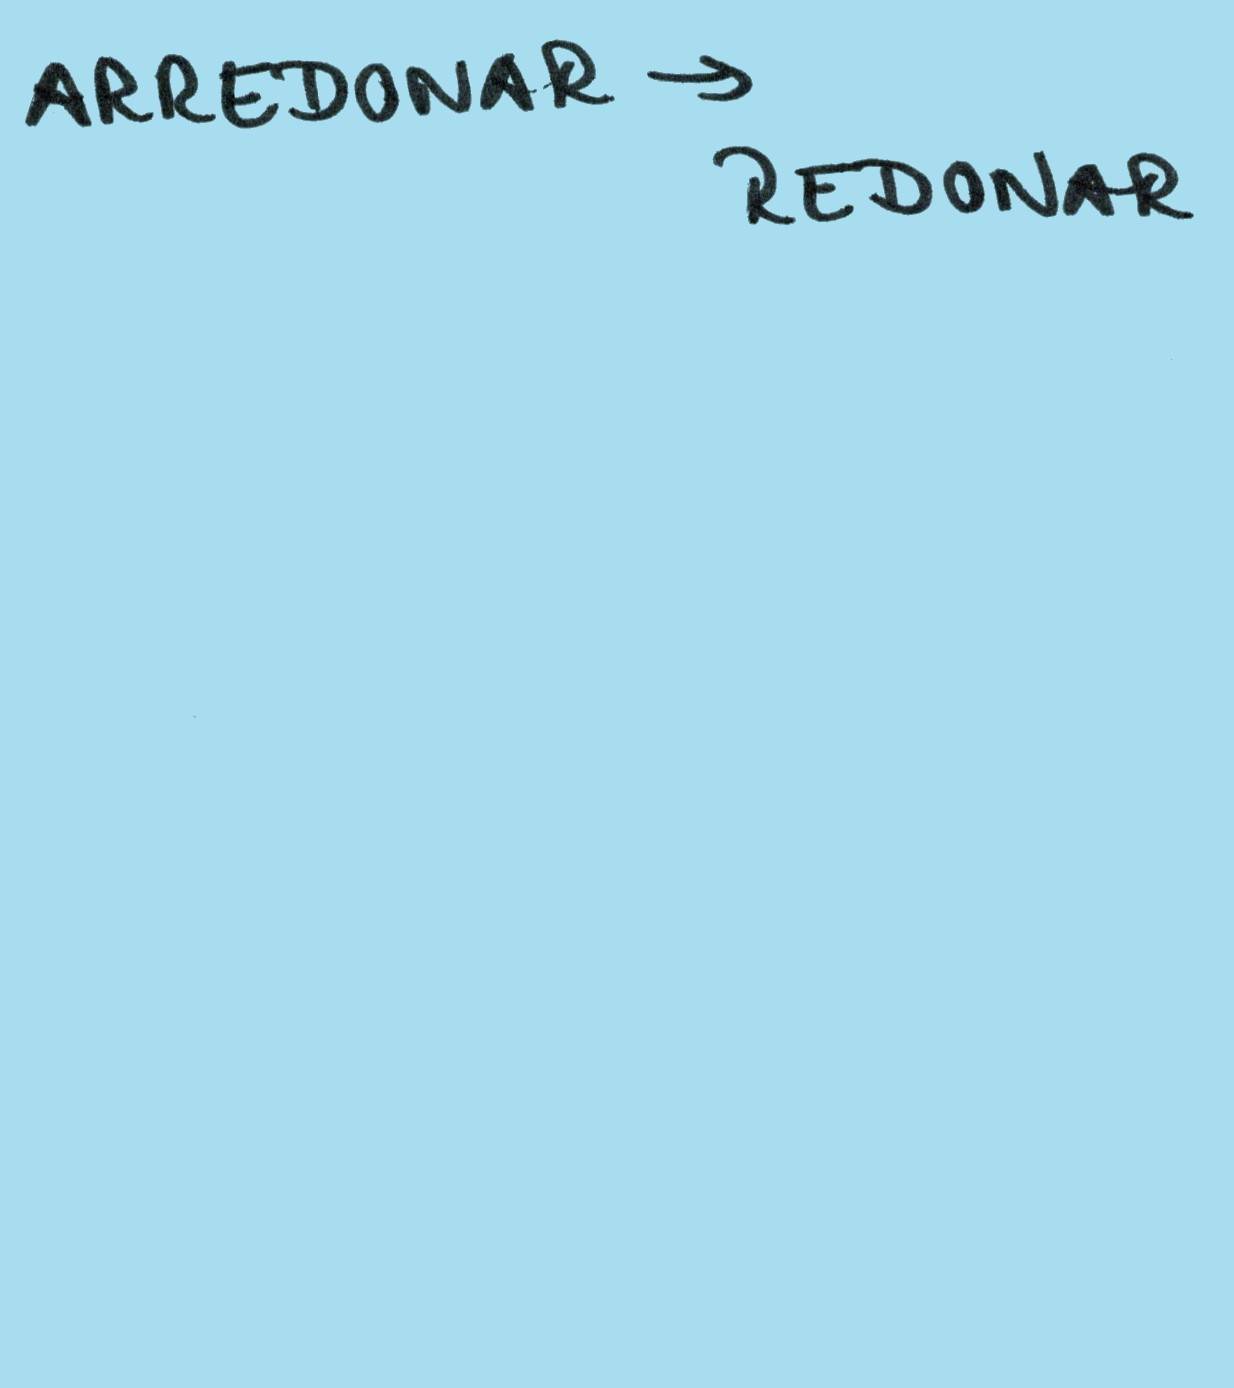 ARREDONAR →
REDONAR